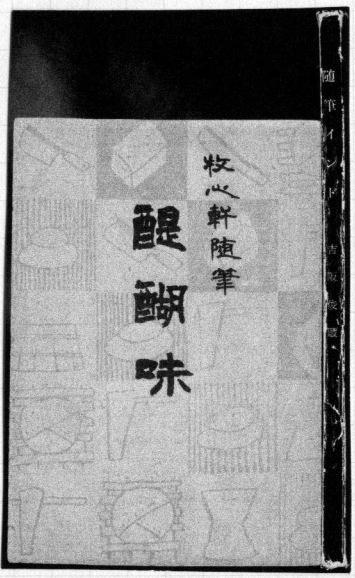 牧心軒随筆
醍醐味
随筆インド